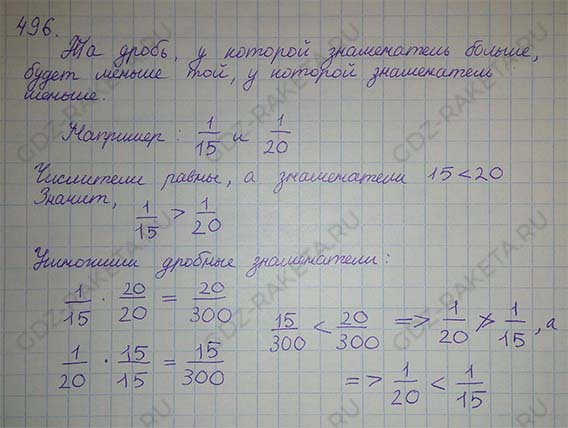 496.
Та дробь, у которой знаменатель больше,
будет меньше той, у которой знаменатель
меньше.
Например: 1/15 и 1/20
Числители равны, а знаменатели 15 < 20
Значит, 1/15 > 1/20
Умножим дробные знаменатели:
1/15 · 20/20 = 20/300
1/20 · 15/15 = 15/300
15/300 < 20/300 => 1/20 ≯ 1/15, а
=> 1/20 < 1/15
GDZ-RAKETA.RU